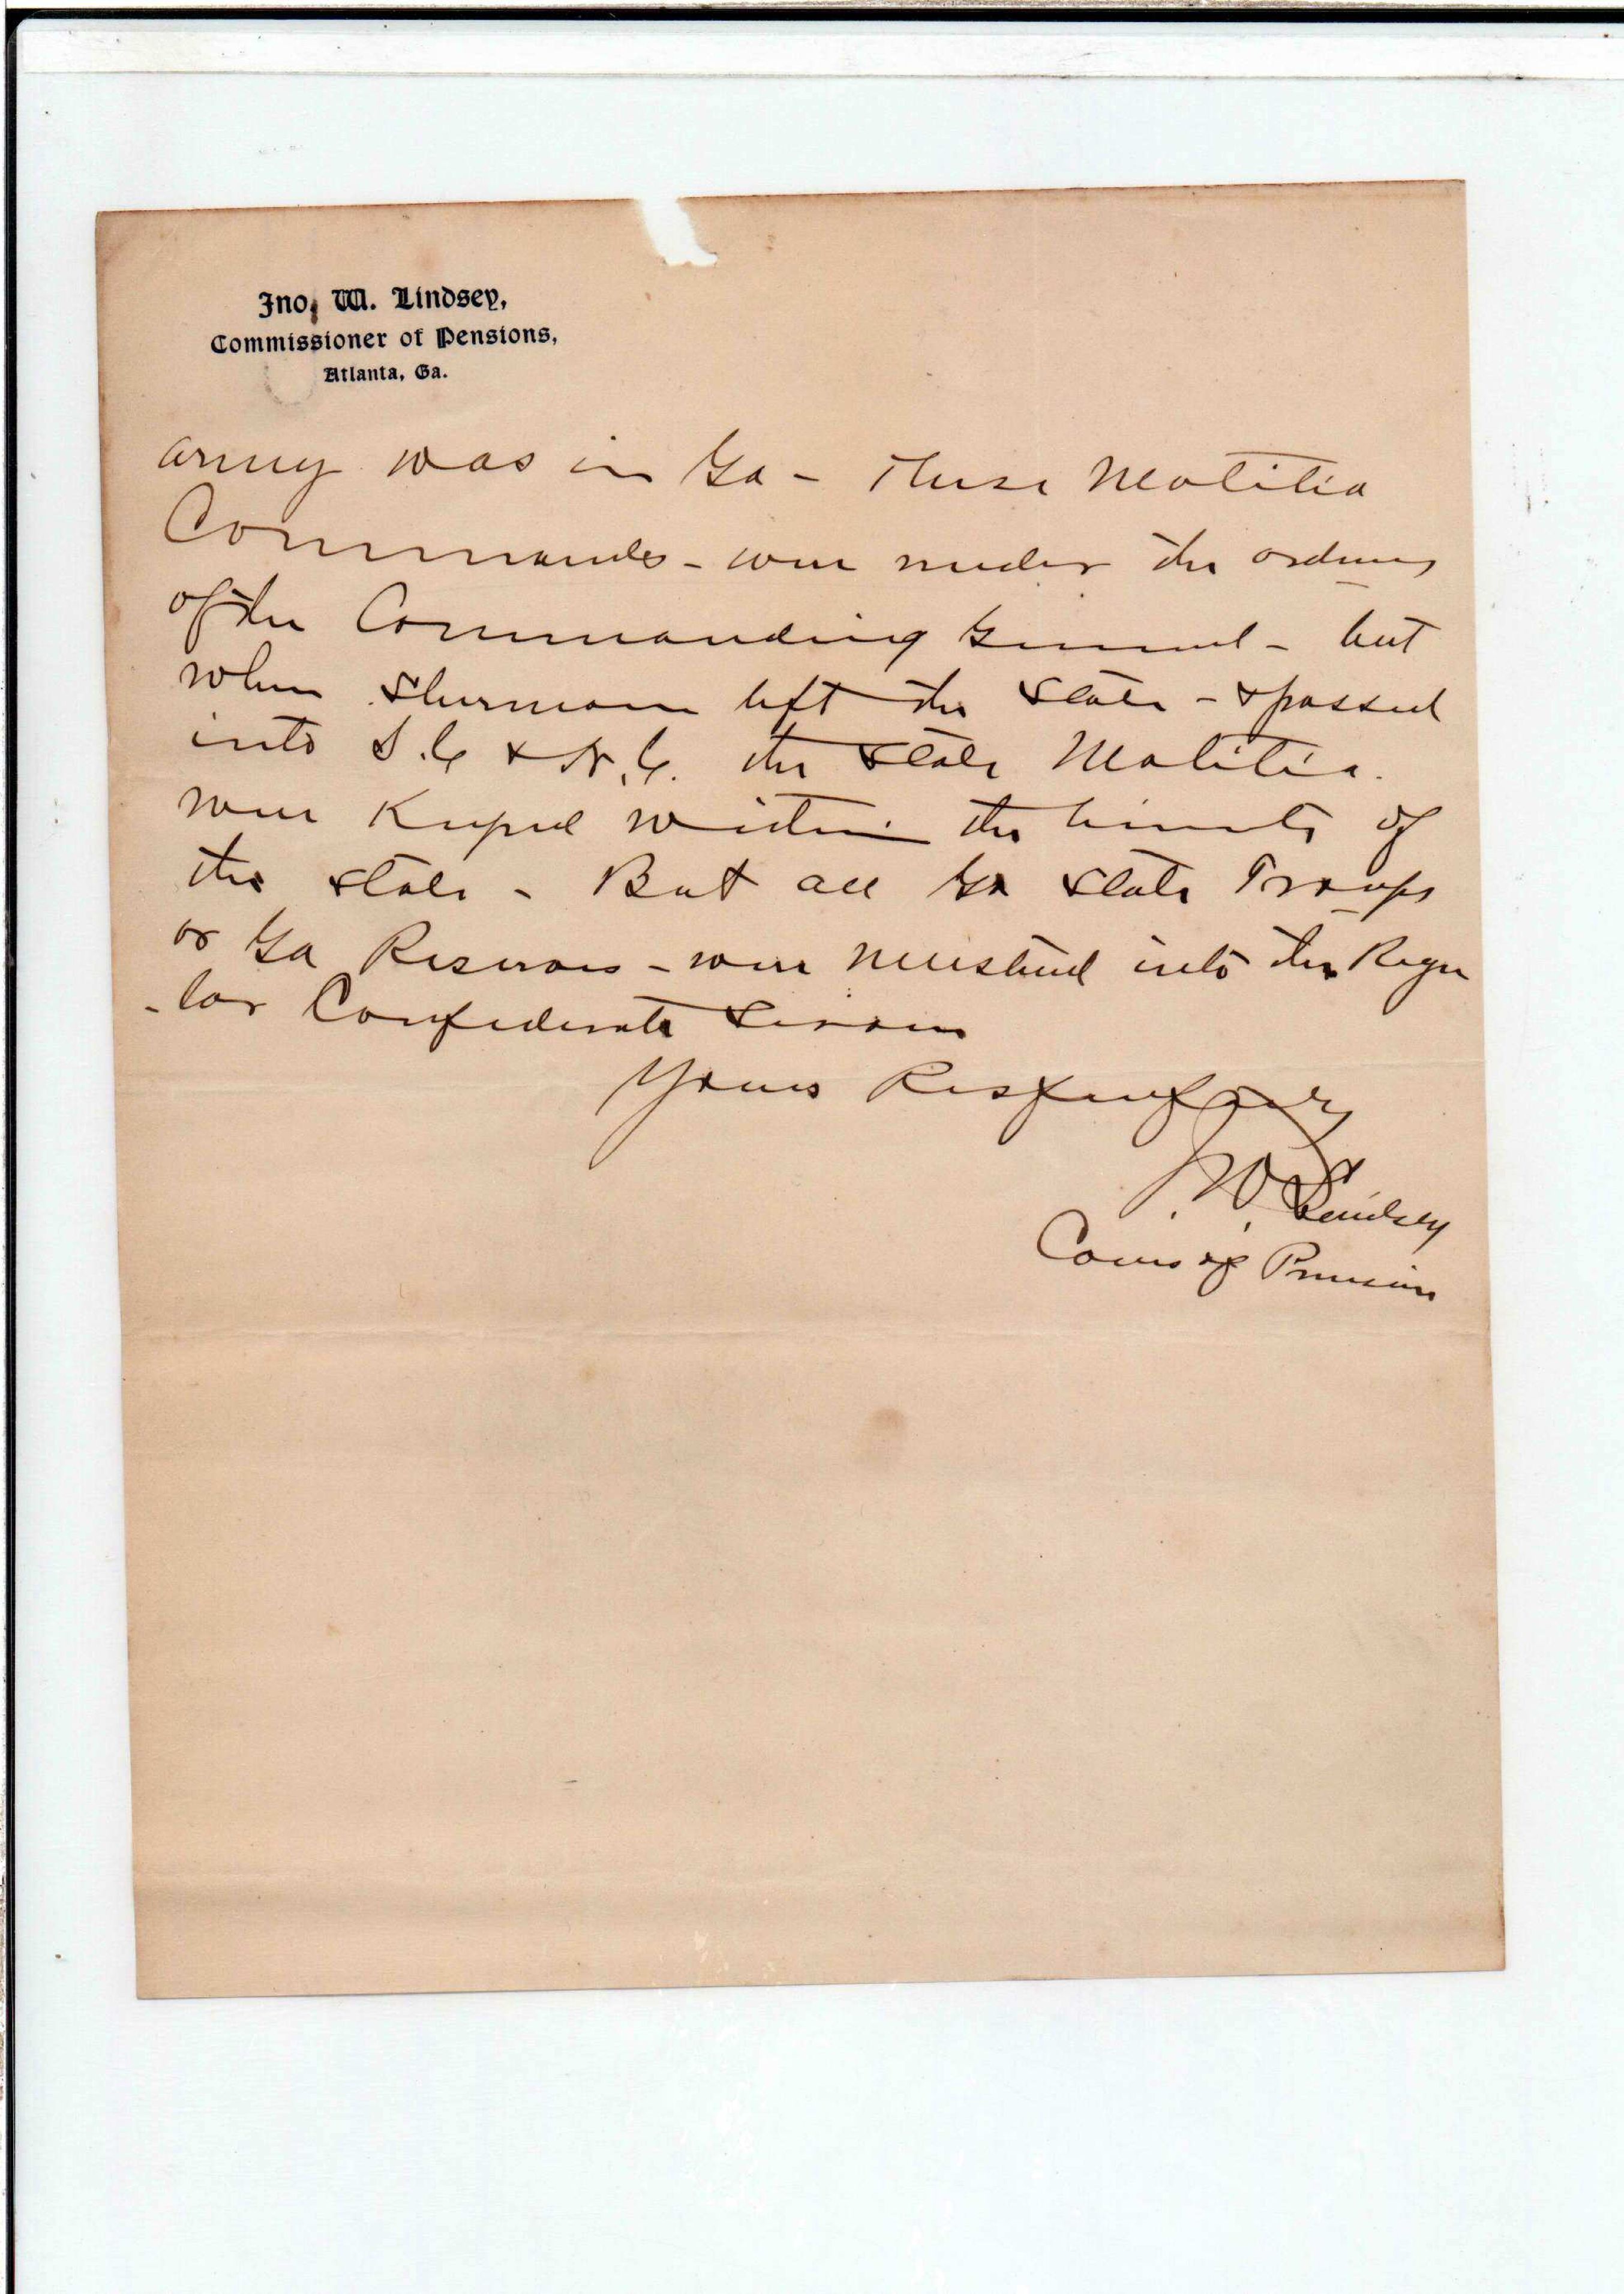 Jno. W. Lindsey,
Commissioner of Pensions,
Atlanta, Ga.
army was in Ga - These Malitia
Commands - were under the orders
of the Commanding General - but
when Sherman left the State - & passed
into S.C & N.C. the State Malitia.
were Keeped within the limits of
the State - But all Ga State Troops
or Ga Reserves - were mustered into the Regu
-lar Confederate Service
Yours Respectfully
J. W. Lindsey
Com of Pensions